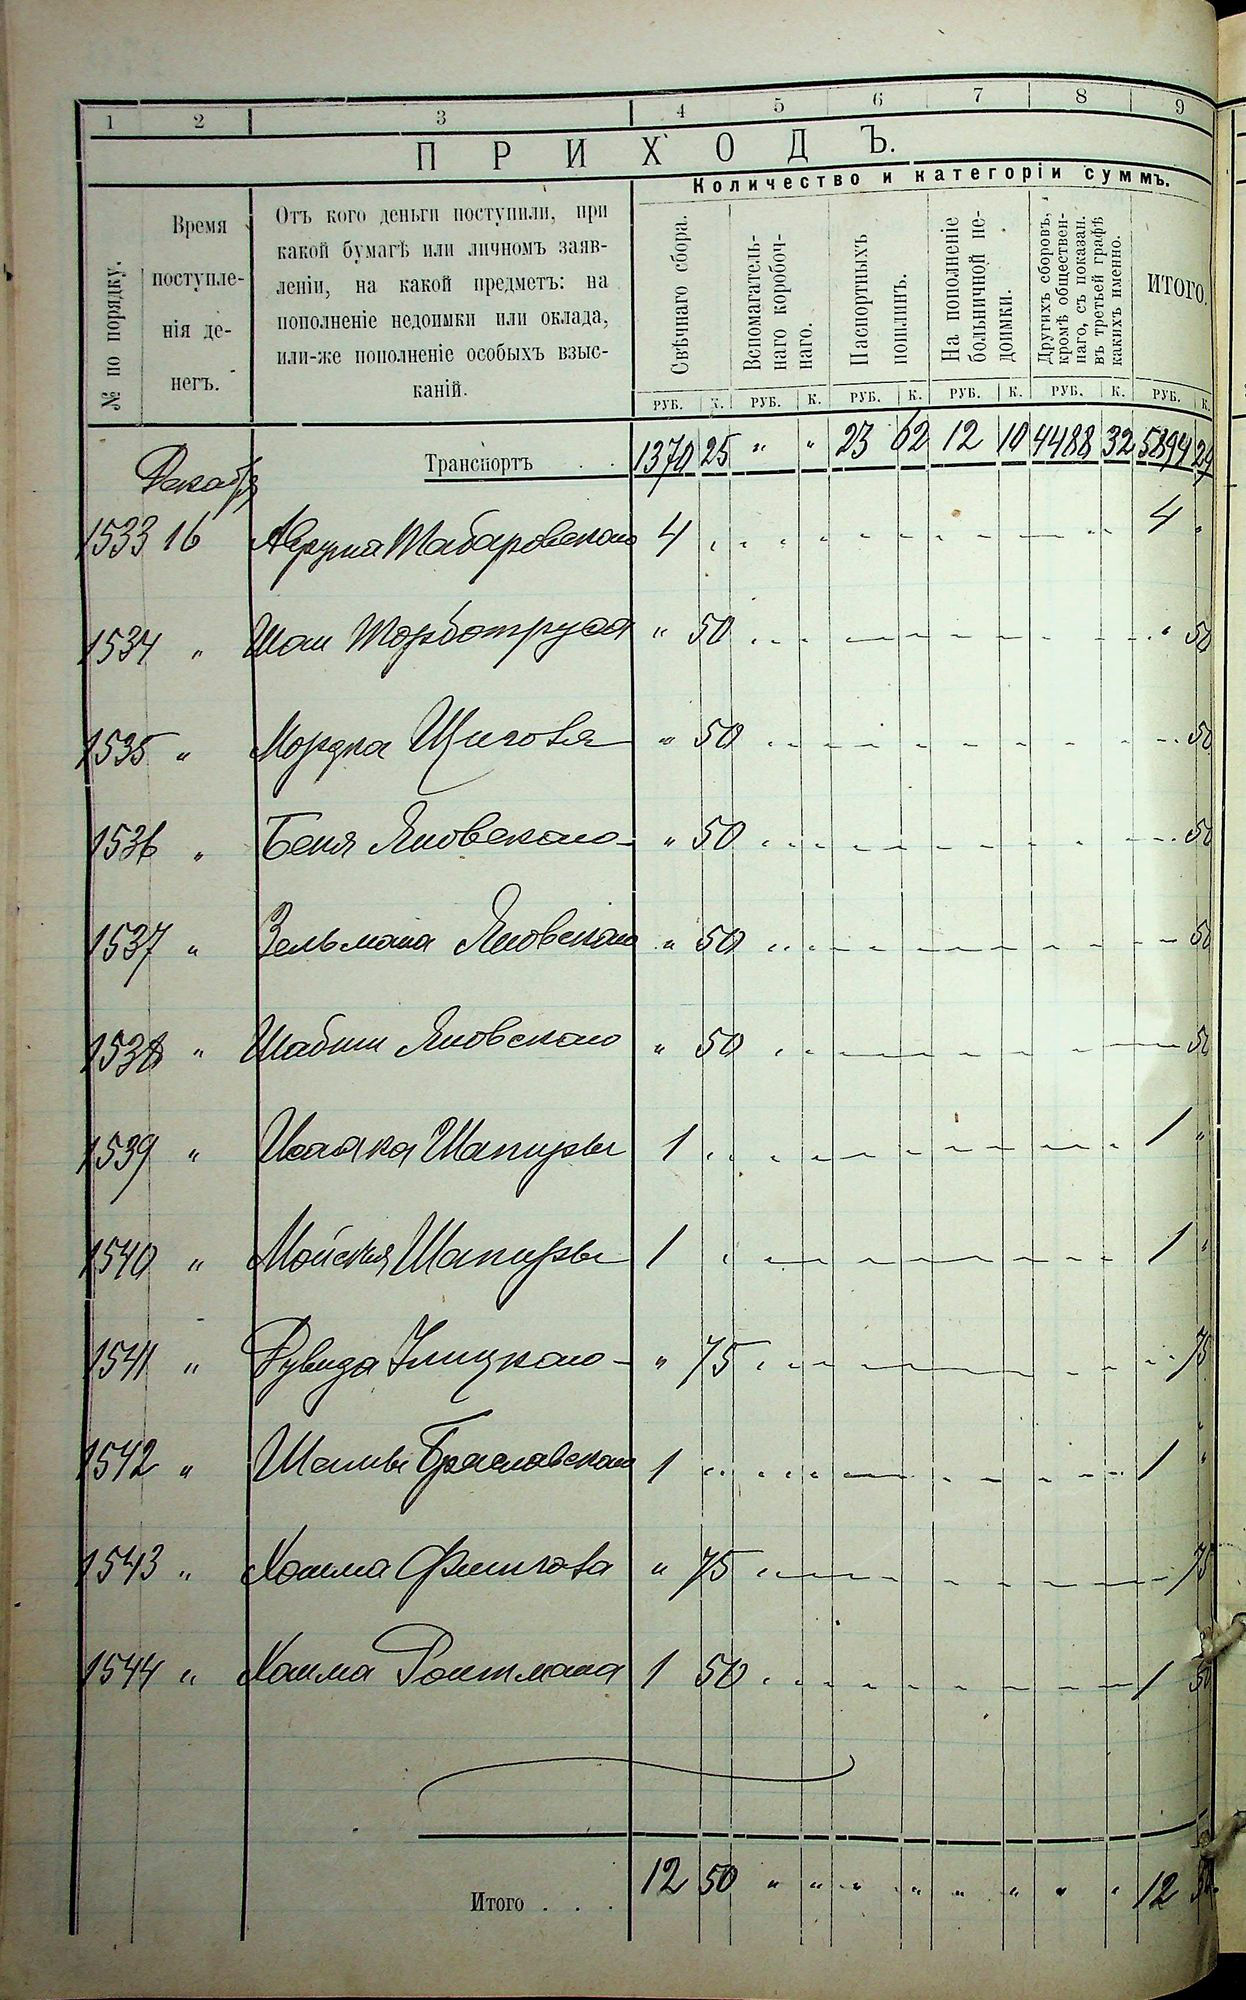 1 2 3 4 5 6 7 8 9
ПРИХОДЪ.
Количество и категоріи суммъ.
№ по порядку.
Время
поступле-
нія де-
негъ.
Отъ кого деньги поступили, при
какой бумагѣ или личномъ заяв-
леніи, на какой предметъ: на
пополненіе недоимки или оклада,
или-же пополненіе особыхъ взыс-
каній.
Свѣчнаго сбора.
Вспомагатель-
наго коробоч-
наго.
Паспортныхъ
пошлинъ.
На пополненіе
больничной не-
доимки.
Другихъ сборовъ,
кромѣ обществен-
наго, съ показан.
въ третьей графѣ
какихъ именно.
ИТОГО.
РУБ. К. РУБ. К. РУБ. К. РУБ. К. РУБ. К. РУБ. К.
Транспортъ . . 1370 25 " " 23 62 12 10 4488 32 5894 29
Декабрь
1533 16 4 4 "
1534 " " 50 " 50
1535 " Мордка " 50 50
1536 " Беня Яновскаго " 50 50
1537 " Зельмана Яновскаго " 50 50
1538 " Шабши Яновскаго " 50 50
1539 " Исаака Шапиры 1 1 "
1540 " Шапиры 1 1 "
1541 " " 75 75
1542 " Браславскаго 1 1 "
1543 " Хаима " 75 75
1544 " Хаима Ройтмана 1 50 1 50
Итого . . . 12 50 " " " " " " " " 12 50